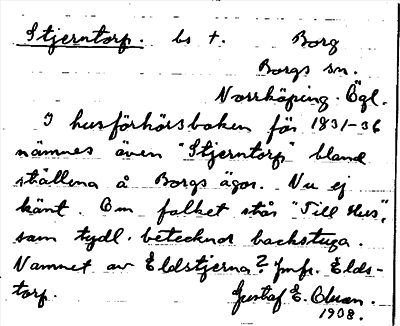 Stjerntorp. bs †. Borg
Borgs sn.
Norrköping. Ögl.
I husförhörsboken för 1831-36
nämnes även "Stjerntorp" bland
ställena å Borgs ägor. Nu ej
känt. Om folket står "Till Hus",
som tydl. betecknar backstuga.
Namnet av Eldstjerna? Jmfr. Elds-
torp.
Gustaf E. Olsson.
1908.